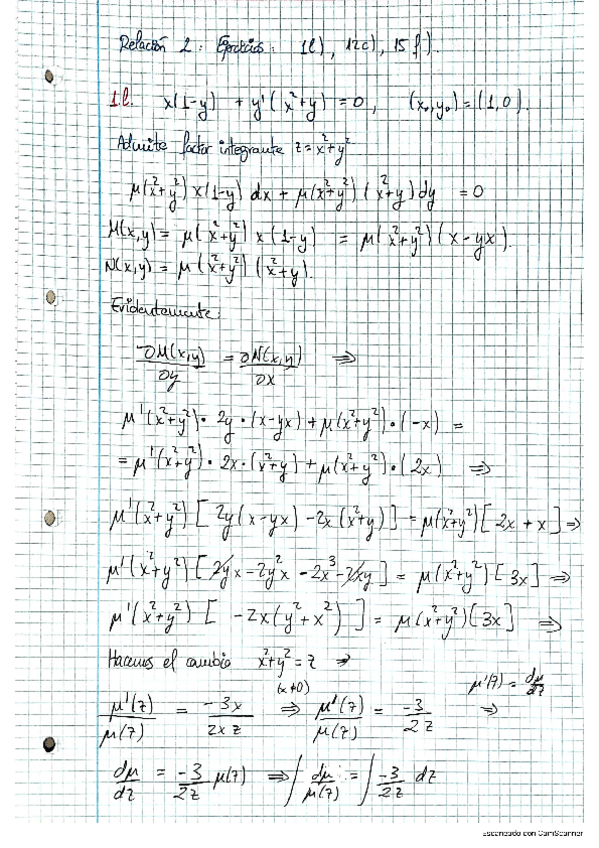 Relación 2: Ejercicios: 1l), 12c), 15f).
1.l. x(1-y) + y'(x²+y) = 0, (x₀,y₀) = (1,0).
Admite factor integrante z = x²+y²
μ(x²+y²) x(1-y) dx + μ(x²+y²) (x²+y) dy = 0
M(x,y) = μ(x²+y²) x (1-y) = μ(x²+y²) (x-yx).
N(x,y) = μ(x²+y²) (x²+y).
Evidentemente:
∂M(x,y)/∂y = ∂N(x,y)/∂x ⇒
μ'(x²+y²) · 2y · (x-yx) + μ(x²+y²) · (-x) =
= μ'(x²+y²) · 2x · (x²+y) + μ(x²+y²) · (2x) ⇒
μ'(x²+y²) [ 2y(x-yx) - 2x(x²+y) ] = μ(x²+y²) [ 2x + x ] ⇒
μ'(x²+y²) [ 2yx - 2y²x - 2x³ - 2xy ] = μ(x²+y²) [ 3x ] ⇒
μ'(x²+y²) [ -2x(y²+x²) ] = μ(x²+y²) [3x] ⇒
Hacemos el cambio x²+y² = z ⇒
(x≠0) μ'(z) = dμ/dz
μ'(z)/μ(z) = -3x/2xz ⇒ μ'(z)/μ(z) = -3/2z ⇒
dμ/dz = -3/2z μ(z) ⇒ ∫ dμ/μ(z) = ∫ -3/2z dz
Escaneado con CamScanner